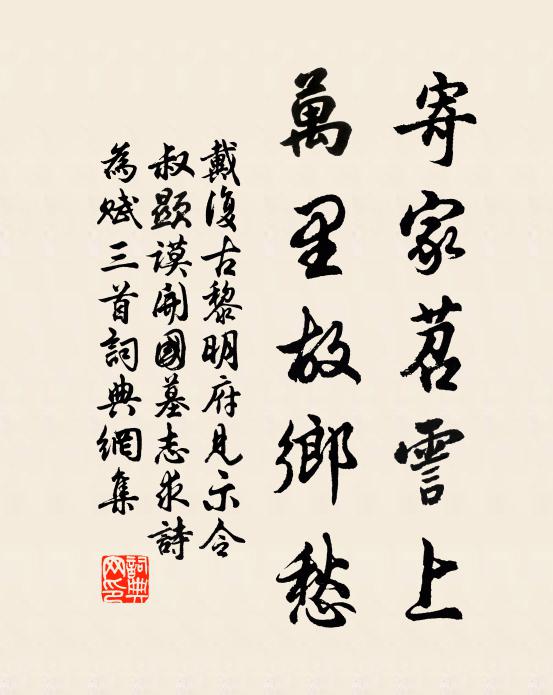 寄家苕霅上
萬里故鄉愁
戴復古黎明府見示令
叔顯謨開國墓志求詩
為賦三首詞典網集
詞典網印